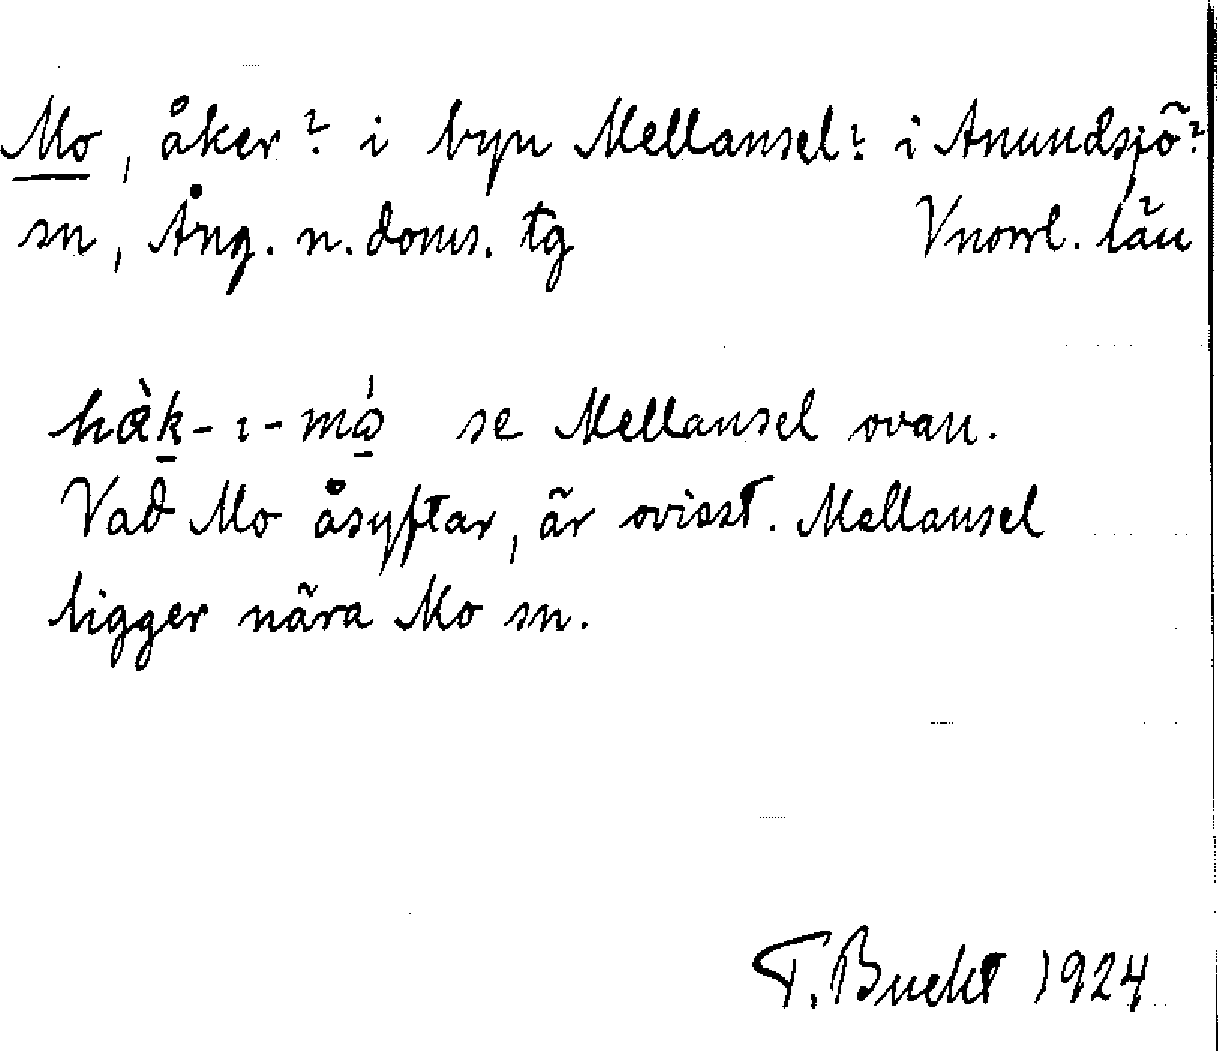 Mo, åker? i byn Mellansel? i Anundsjö?
sn, Ång. n. doms. tg Vnorrl. län
hæ̀k-ı-mó̱ se Mellansel ovan.
Vad Mo åsyftar, är ovisst. Mellansel
ligger nära Mo sn.
T. Bucht 1924